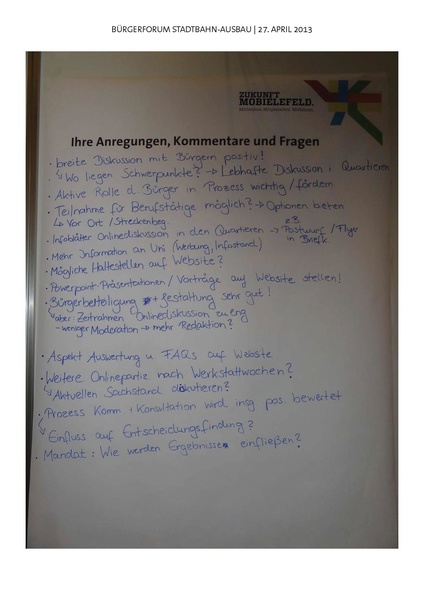 BÜRGERFORUM STADTBAHN-AUSBAU | 27. APRIL 2013
ZUKUNFT
MOBIELEFELD.
Ihre Anregungen, Kommentare und Fragen
· breite Diskussion mit Bürgern positiv!
↳ Wo liegen Schwerpunkte? → Lebhafte Diskussion i. Quartieren
· Aktive Rolle d. Bürger in Prozess wichtig / fördern
· Teilnahme für Berufstätige möglich? → Optionen bieten
↳ Vor Ort / Streckenbeg.
· Infoblätter Onlinediskussion in den Quartieren → zB Postwurf / Flyer
in Briefk.
· Mehr Information an Uni (Werbung, Infostand)
· Mögliche Haltestellen auf Website?
· Powerpoint-Präsentationen / Vorträge auf Website stellen!
· Bürgerbeteiligung + Gestaltung sehr gut!
↳ aber: Zeitrahmen Onlinediskussion zu eng
- weniger Moderation → mehr Redaktion?
· Aspekt Auswertung u. FAQs auf Website
· Weitere Onlinepartiz. nach Werkstattwochen?
↳ Aktuellen Sachstand diskutieren?
· Prozess Komm. + Konsultation wird insg. pos. bewertet
↳ Einfluss auf Entscheidungsfindung?
· Mandat: Wie werden Ergebnisse einfließen?